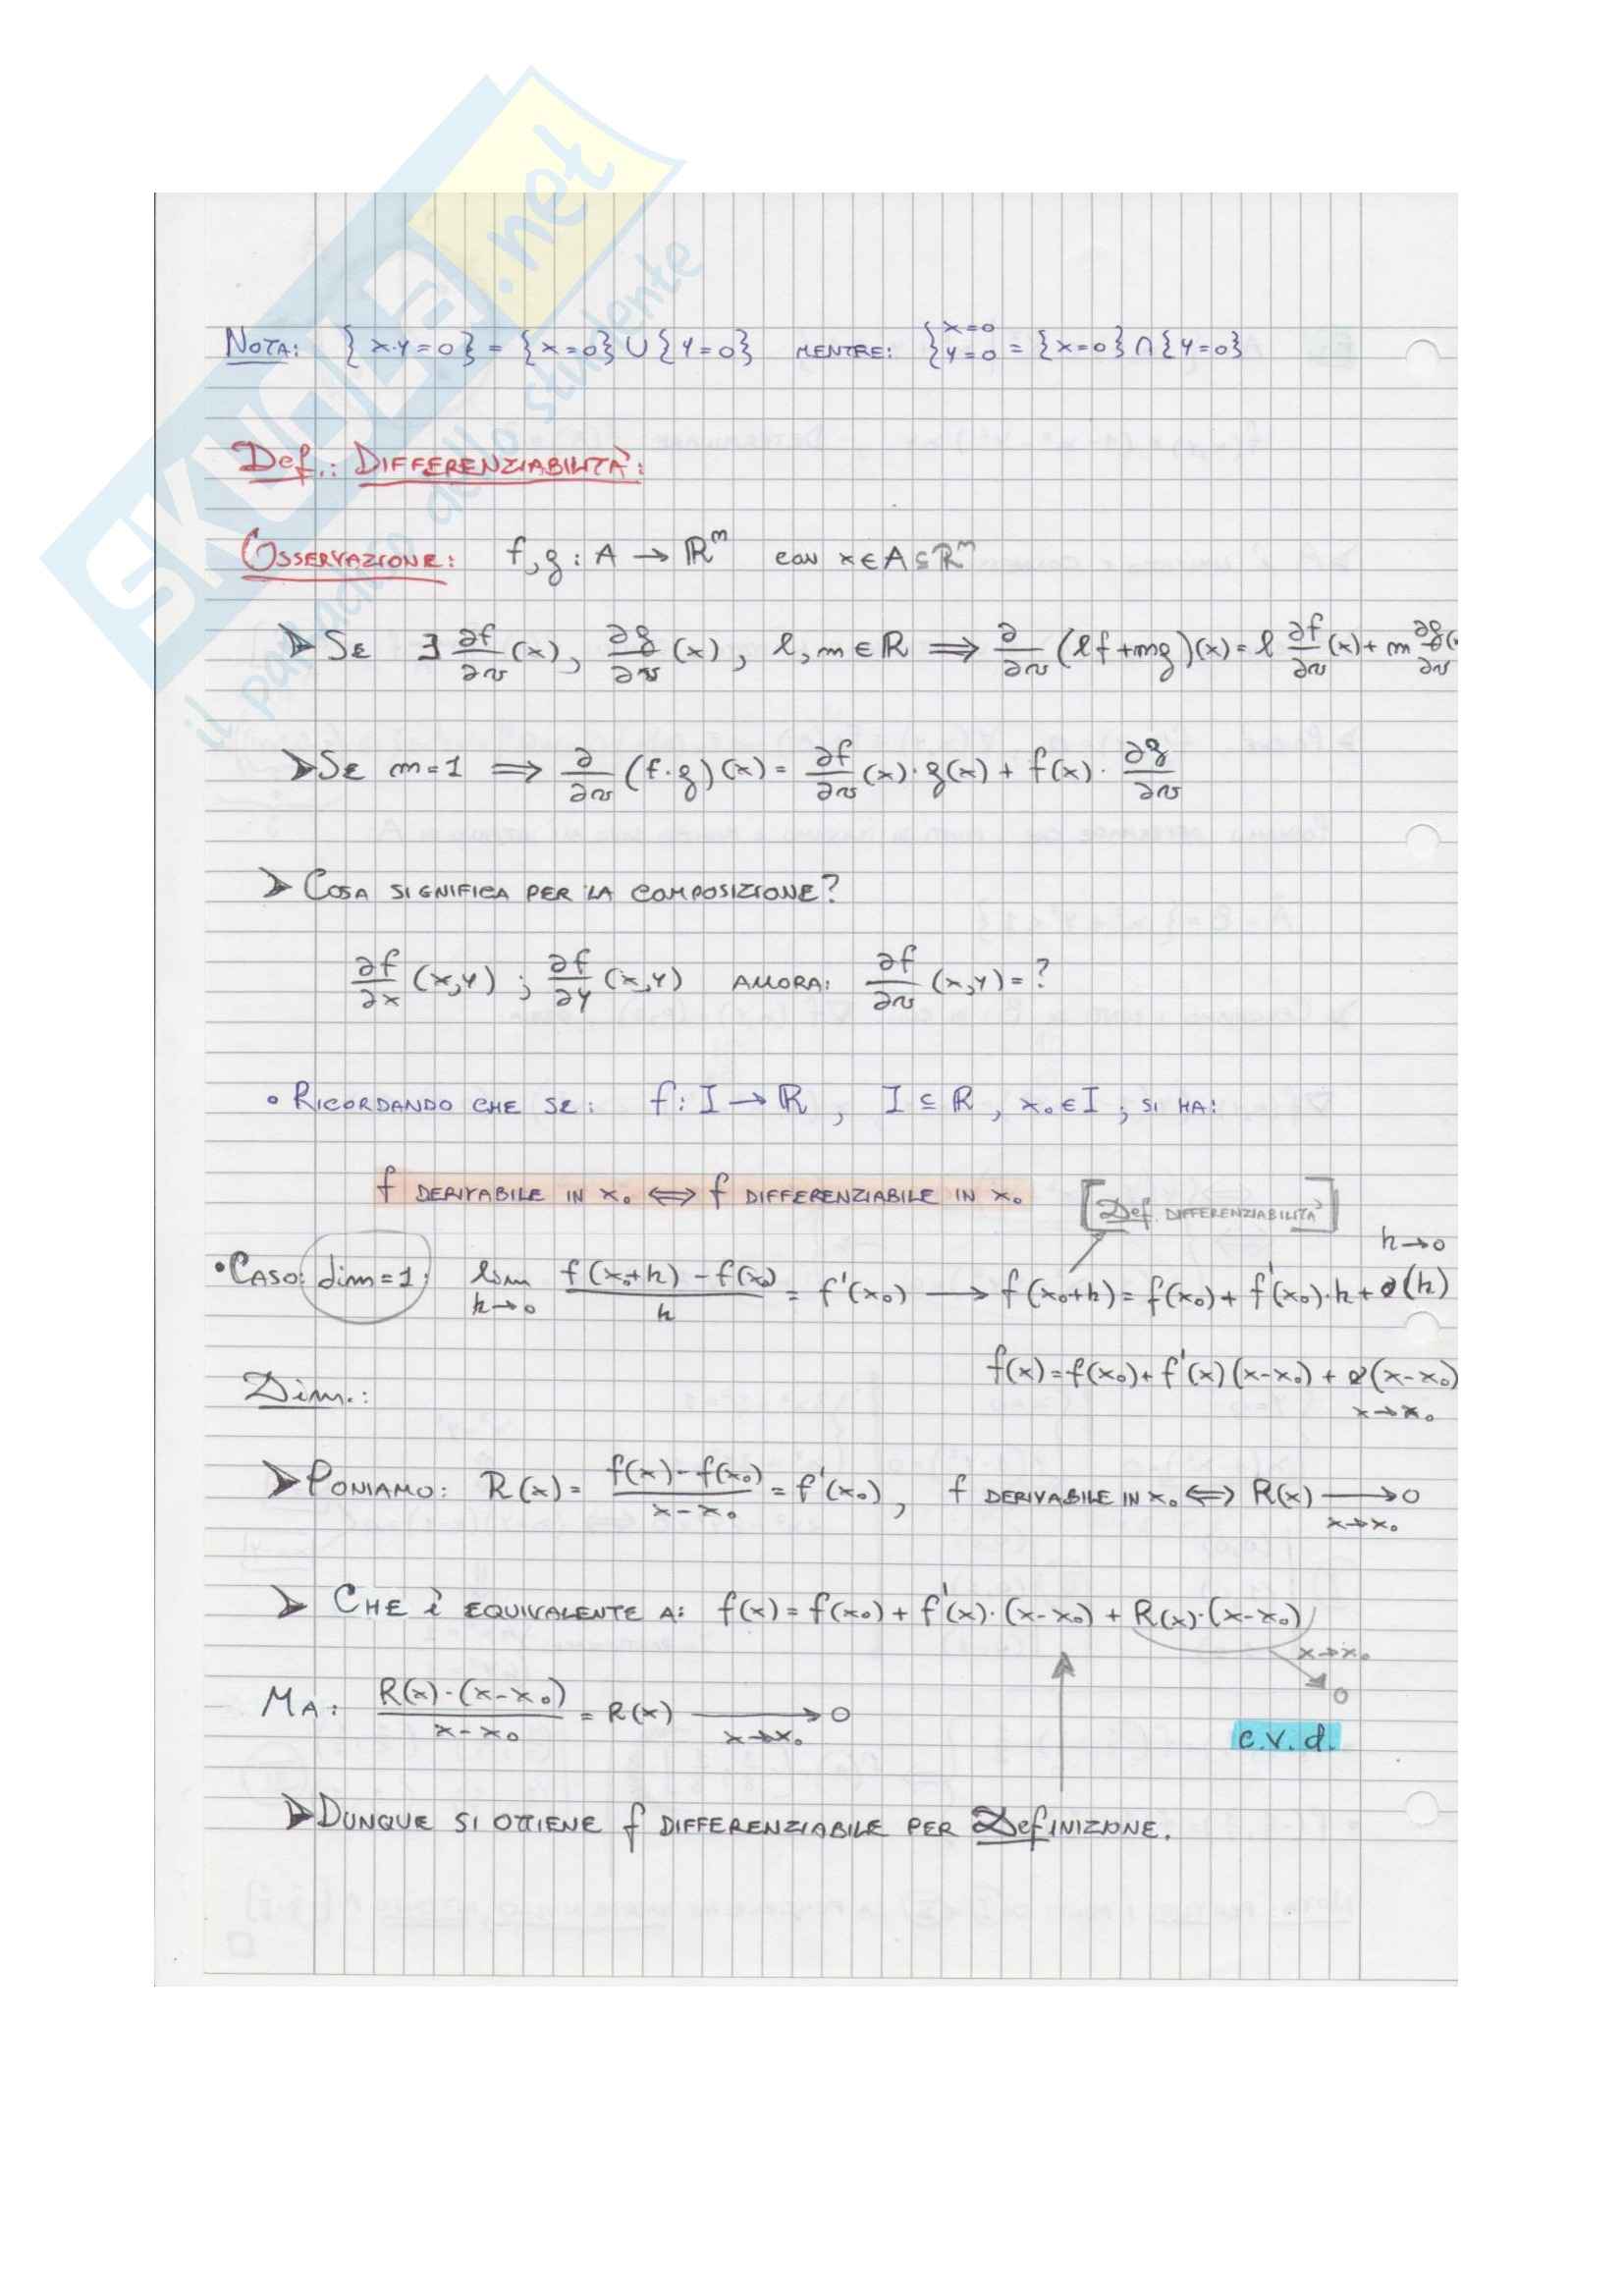 SKUOLA.net
il paradiso dello studente
NOTA: { x·y=0 } = { x=0 } ∪ { y=0 } MENTRE: { x=0 y=0 = { x=0 } ∩ { y=0 }
Def.: DIFFERENZIABILITÀ:
OSSERVAZIONE: f, g : A → ℝᵐ con x ∈ A ⊆ ℝⁿ
➤ SE ∃ ∂f/∂v (x), ∂g/∂v (x), l, m ∈ ℝ ⟹ ∂/∂v (lf + mg)(x) = l ∂f/∂v (x) + m ∂g/∂v (
➤ SE m=1 ⟹ ∂/∂v (f·g)(x) = ∂f/∂v (x)·g(x) + f(x)· ∂g/∂v
➤ COSA SIGNIFICA PER LA COMPOSIZIONE?
∂f/∂x (x,y) ; ∂f/∂y (x,y) ALLORA: ∂f/∂v (x,y) = ?
• RICORDANDO CHE SE: f: I → ℝ, I ⊆ ℝ, x₀ ∈ I ; SI HA:
f DERIVABILE IN x₀ ⟺ f DIFFERENZIABILE IN x₀
[Def. DIFFERENZIABILITÀ]
h→0
• CASO: dim=1: lim h→0 f(x₀+h) - f(x₀) / h = f'(x₀) → f(x₀+h) = f(x₀) + f'(x₀)·h + o(h)
f(x) = f(x₀) + f'(x)(x-x₀) + o(x-x₀)
x→x₀
Dim.:
➤ PONIAMO: R(x) = f(x) - f(x₀) / x - x₀ = f'(x₀), f DERIVABILE IN x₀ ⟺ R(x) → 0
x→x₀
➤ CHE È EQUIVALENTE A: f(x) = f(x₀) + f'(x)·(x-x₀) + R(x)·(x-x₀)
x→x₀
0
MA: R(x)·(x-x₀) / x - x₀ = R(x) → 0
x→x₀
c.v.d.
➤ DUNQUE SI OTTIENE f DIFFERENZIABILE PER DefINIZIONE.